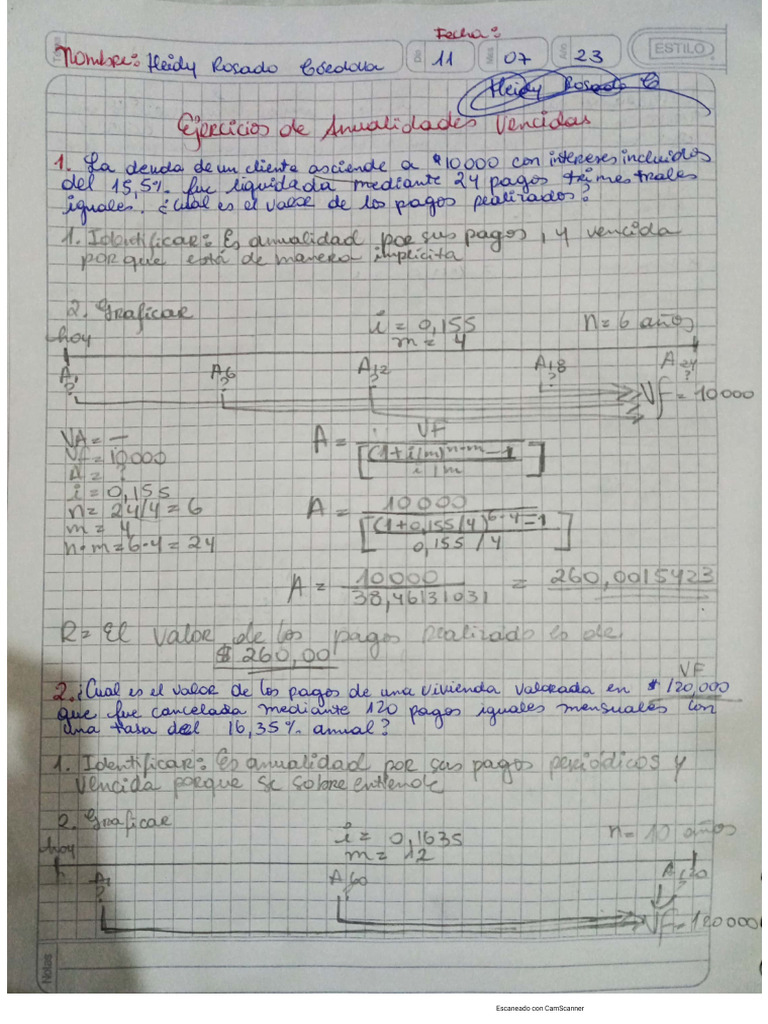 Fecha:
Tema
Nombre: Heidy Rosado Córdova Día 11 Mes 07 Año 23 ESTILO
Heidy Rosado C
Ejercicios de Anualidades Vencidas
1. La deuda de un cliente asciende a $10000 con intereses incluidos
del 15,5% fue liquidada mediante 24 pagos trimestrales
iguales. ¿Cuál es el valor de los pagos realizados?
1. Identificar: Es anualidad por sus pagos, y vencida
porque está de manera implícita
2. Graficar
hoy i = 0,155 n= 6 años
m= 4
A1 A6 A12 A18 A24
? ? ? ? ?
Vf = 10000
VA = —
Vf = 10000
A = ?
i = 0,155
n= 24/4 = 6
m= 4
n·m=6·4=24
A = VF / [((1+i/m)^n·m −1) / i/m]
A = 10000 / [((1+0,155/4)^6·4 −1) / 0,155/4]
A = 10000 / 38,46131031 = 260,0015423
R= El valor de los pagos realizado es de
$ 260,00
VF
2. ¿Cual es el valor de los pagos de una vivienda valorada en $ 120,000
que fue cancelada mediante 120 pagos iguales mensuales con
una tasa del 16,35% annal?
1. Identificar: Es anualidad por sus pagos periódicos y
vencida porque se sobre entiende
2. Graficar
hoy i= 0,1635 n= 10 años
m= 12
A1 A60 A120
? ? ?
Vf=120000
Notas
Escaneado con CamScanner